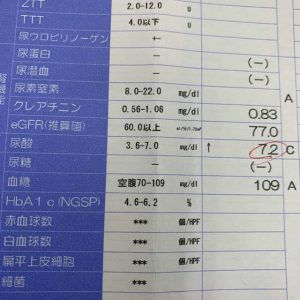 ZTT 2.0-12.0 U
TTT 4.0以下 U
尿ウロビリノーゲン +-
尿蛋白 - (-)
尿潜血 - (-) A
尿素窒素 8.0-22.0 mg/dl
クレアチニン 0.56-1.06 mg/dl 0.83
eGFR(推算値) 60.0以上 77.0
尿酸 3.6-7.0 mg/dl ↑ 7.2 C
尿糖 - (-)
血糖 空腹70-109 mg/dl 109 A
HbA1c(NGSP) 4.6-6.2 %
赤血球数 *** 個/HPF
白血球数 *** 個/HPF
扁平上皮細胞 *** 個/HPF
細菌 ***